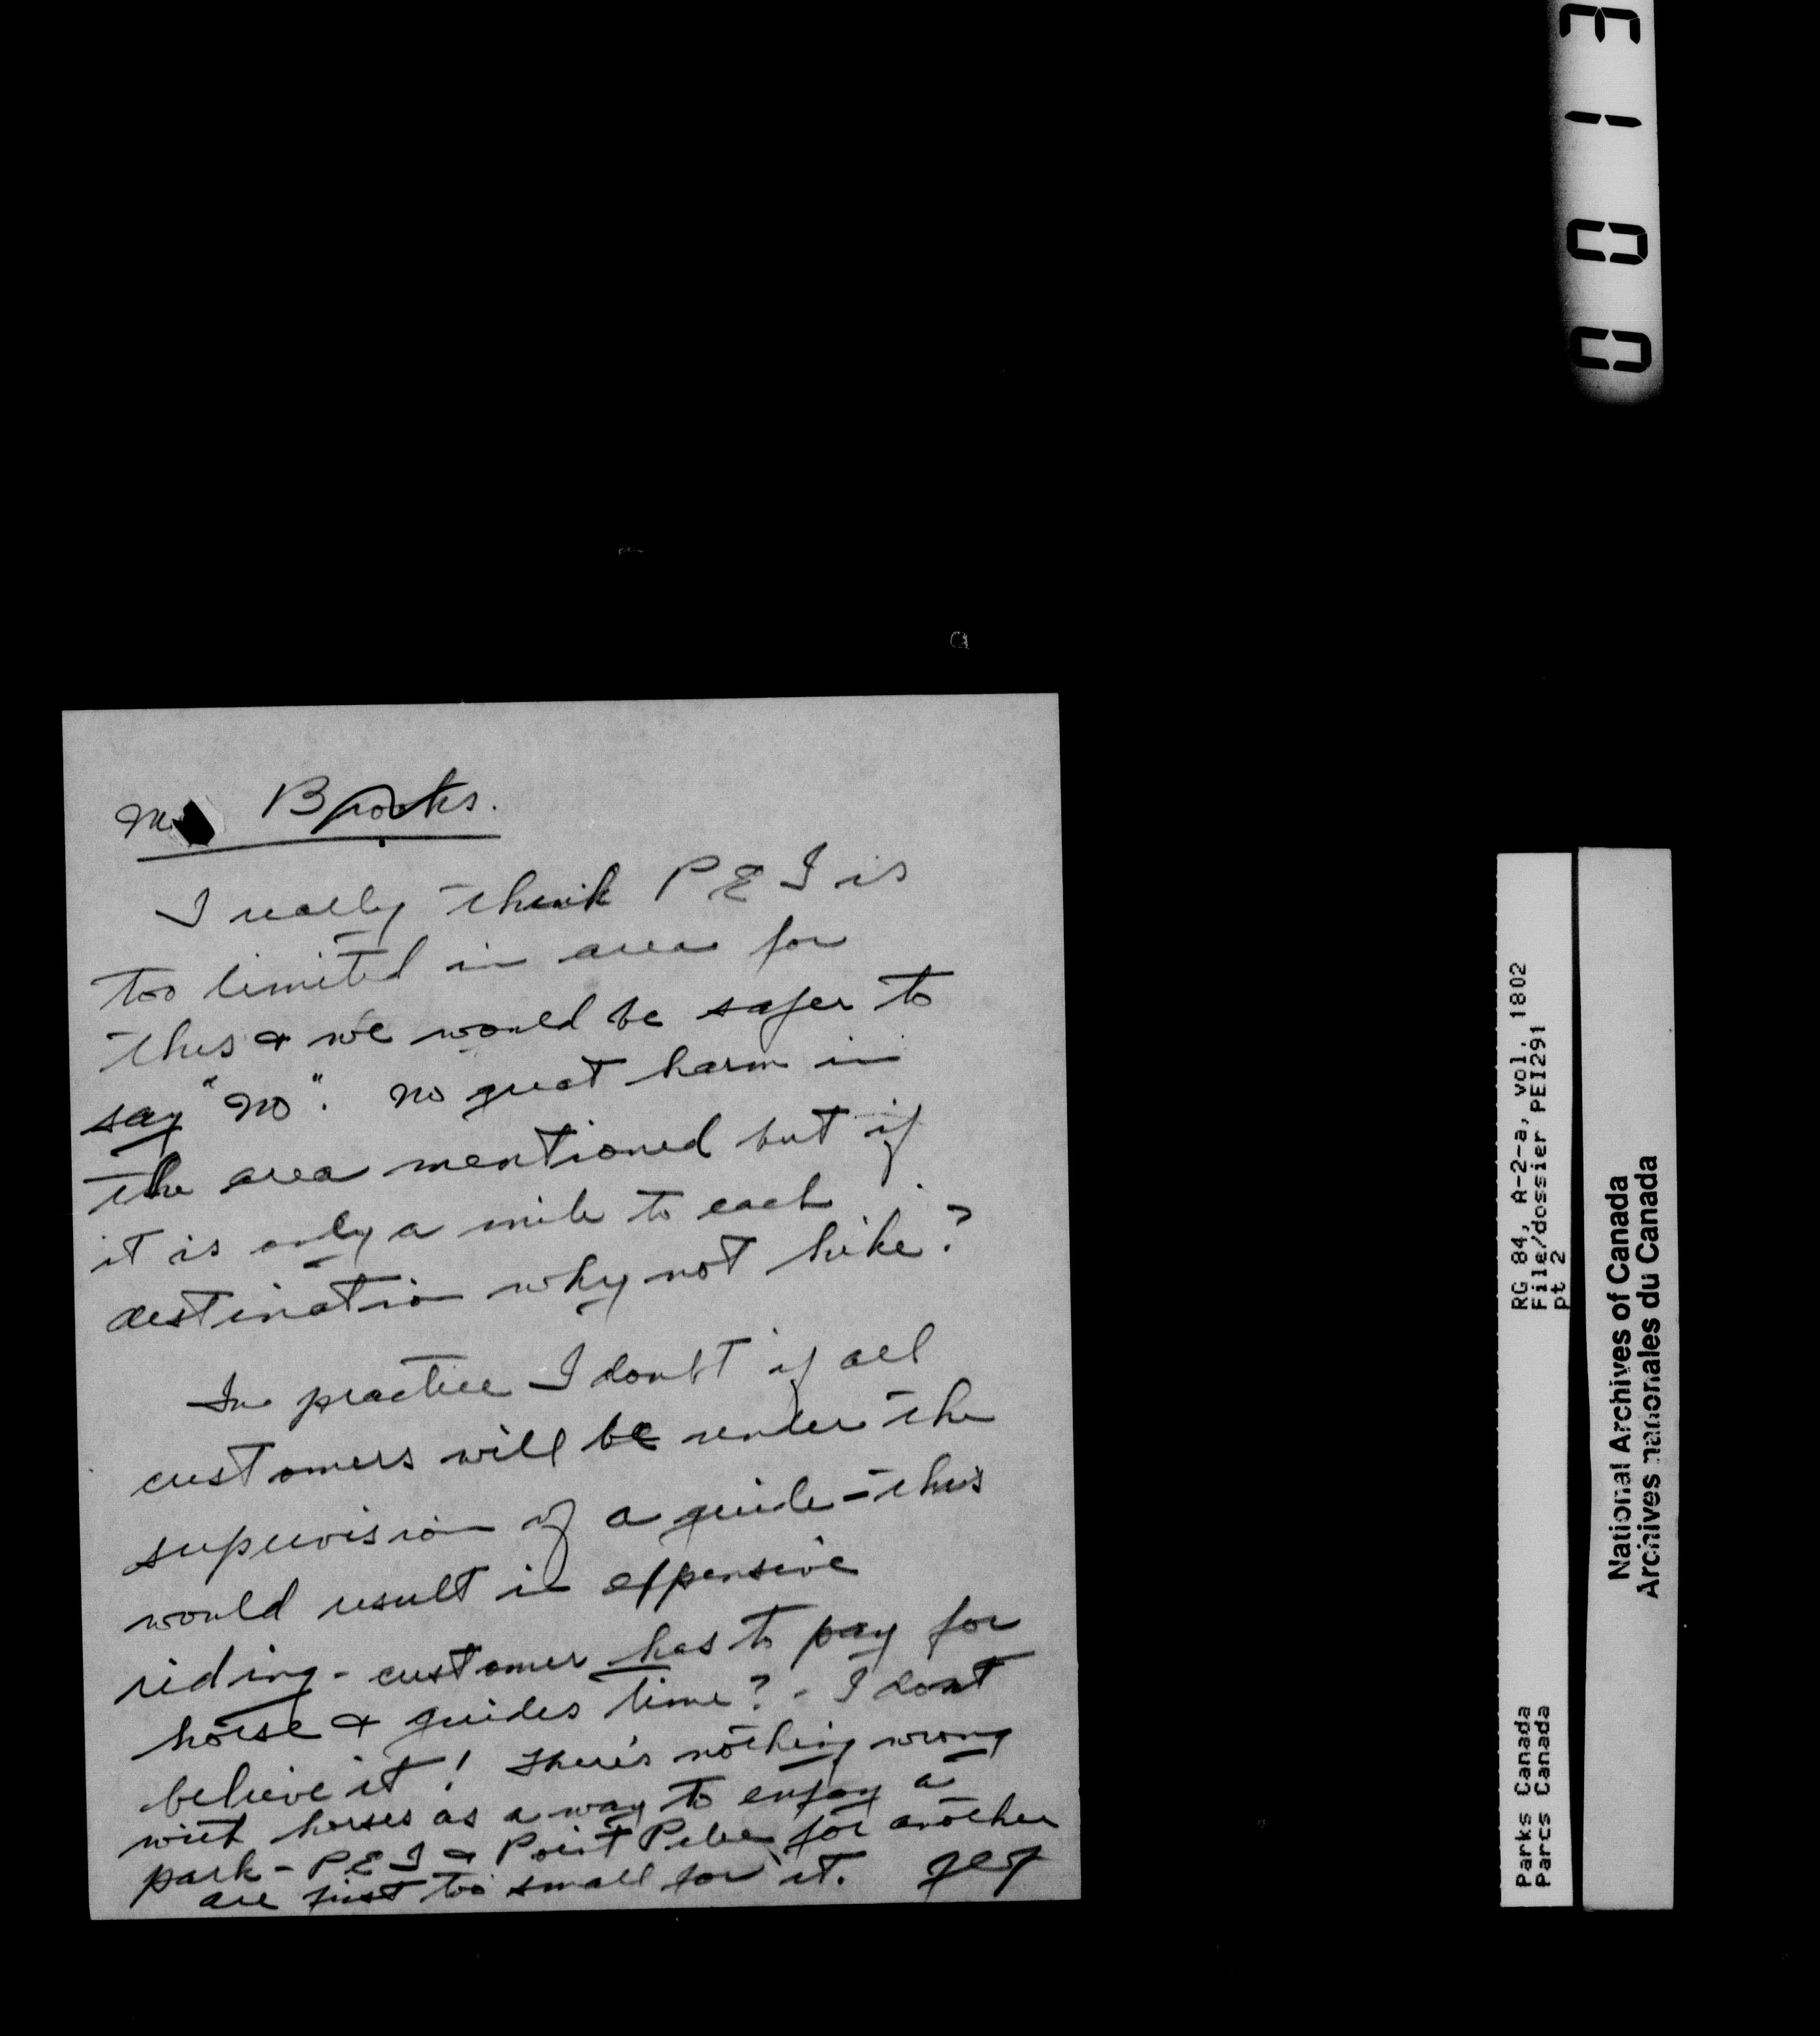 Mr Brooks.
I really think P E I is
too limited in area for
this & we would be safer to
say "No". No great harm in
the area mentioned but if
it is only a mile to each
destination why not hike?
In practice I doubt if all
customers will be under the
supervision of a guide - this
would result in expensive
riding - customer has to pay for
horse & guides time? - I dont
believe it! There's nothing wrong
with horses as a way to enjoy a
park - P E I & Point Pelee for another
are just too small for it.
0013
RG 84, A-2-a, vol. 1802
File/dossier PEI291
pt 2
Parks Canada
Parcs Canada
National Archives of Canada
Archives nationales du Canada